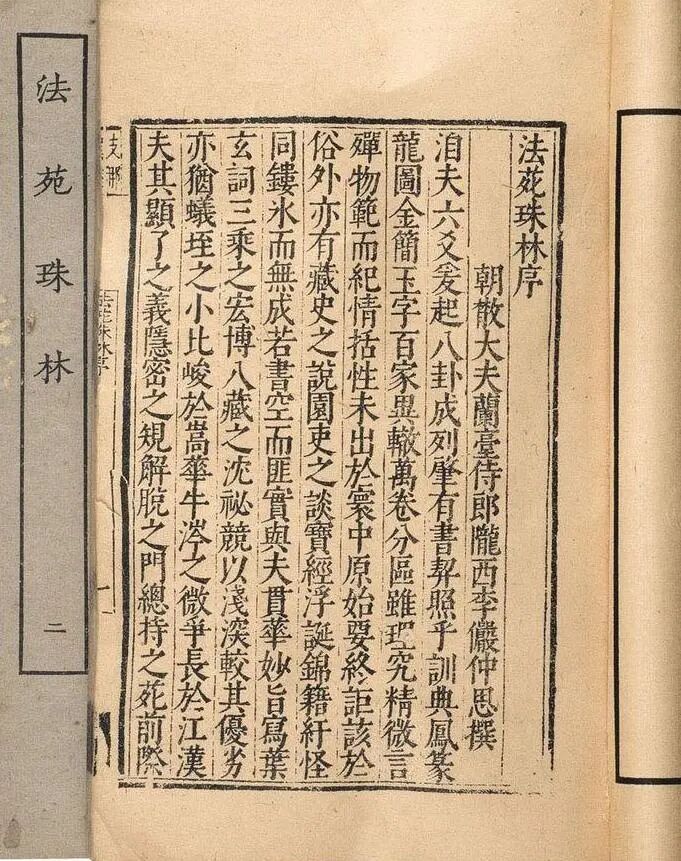 法苑珠林序
朝散大夫蘭臺侍郎隴西李儼仲思撰
洎夫六爻爰起八卦成列肇有書契照乎訓典鳳篆
龍圖金簡玉字百家異轍萬卷分區雖理究精微言
殫物範而紀情括性未出於寰中原始要終詎該於
俗外亦有藏史之說園吏之談寶經浮誕錦籍紆怪
同鏤氷而無成若書空而匪實與夫貫華妙旨寫葉
玄詞三乘之宏博八藏之沈祕競以淺深較其優劣
亦猶蟻垤之小比峻於嵩華牛涔之微爭長於江漢
夫其顯了之義隱密之規解脫之門總持之苑前際
支那
法苑珠林序
一
法苑珠林
二